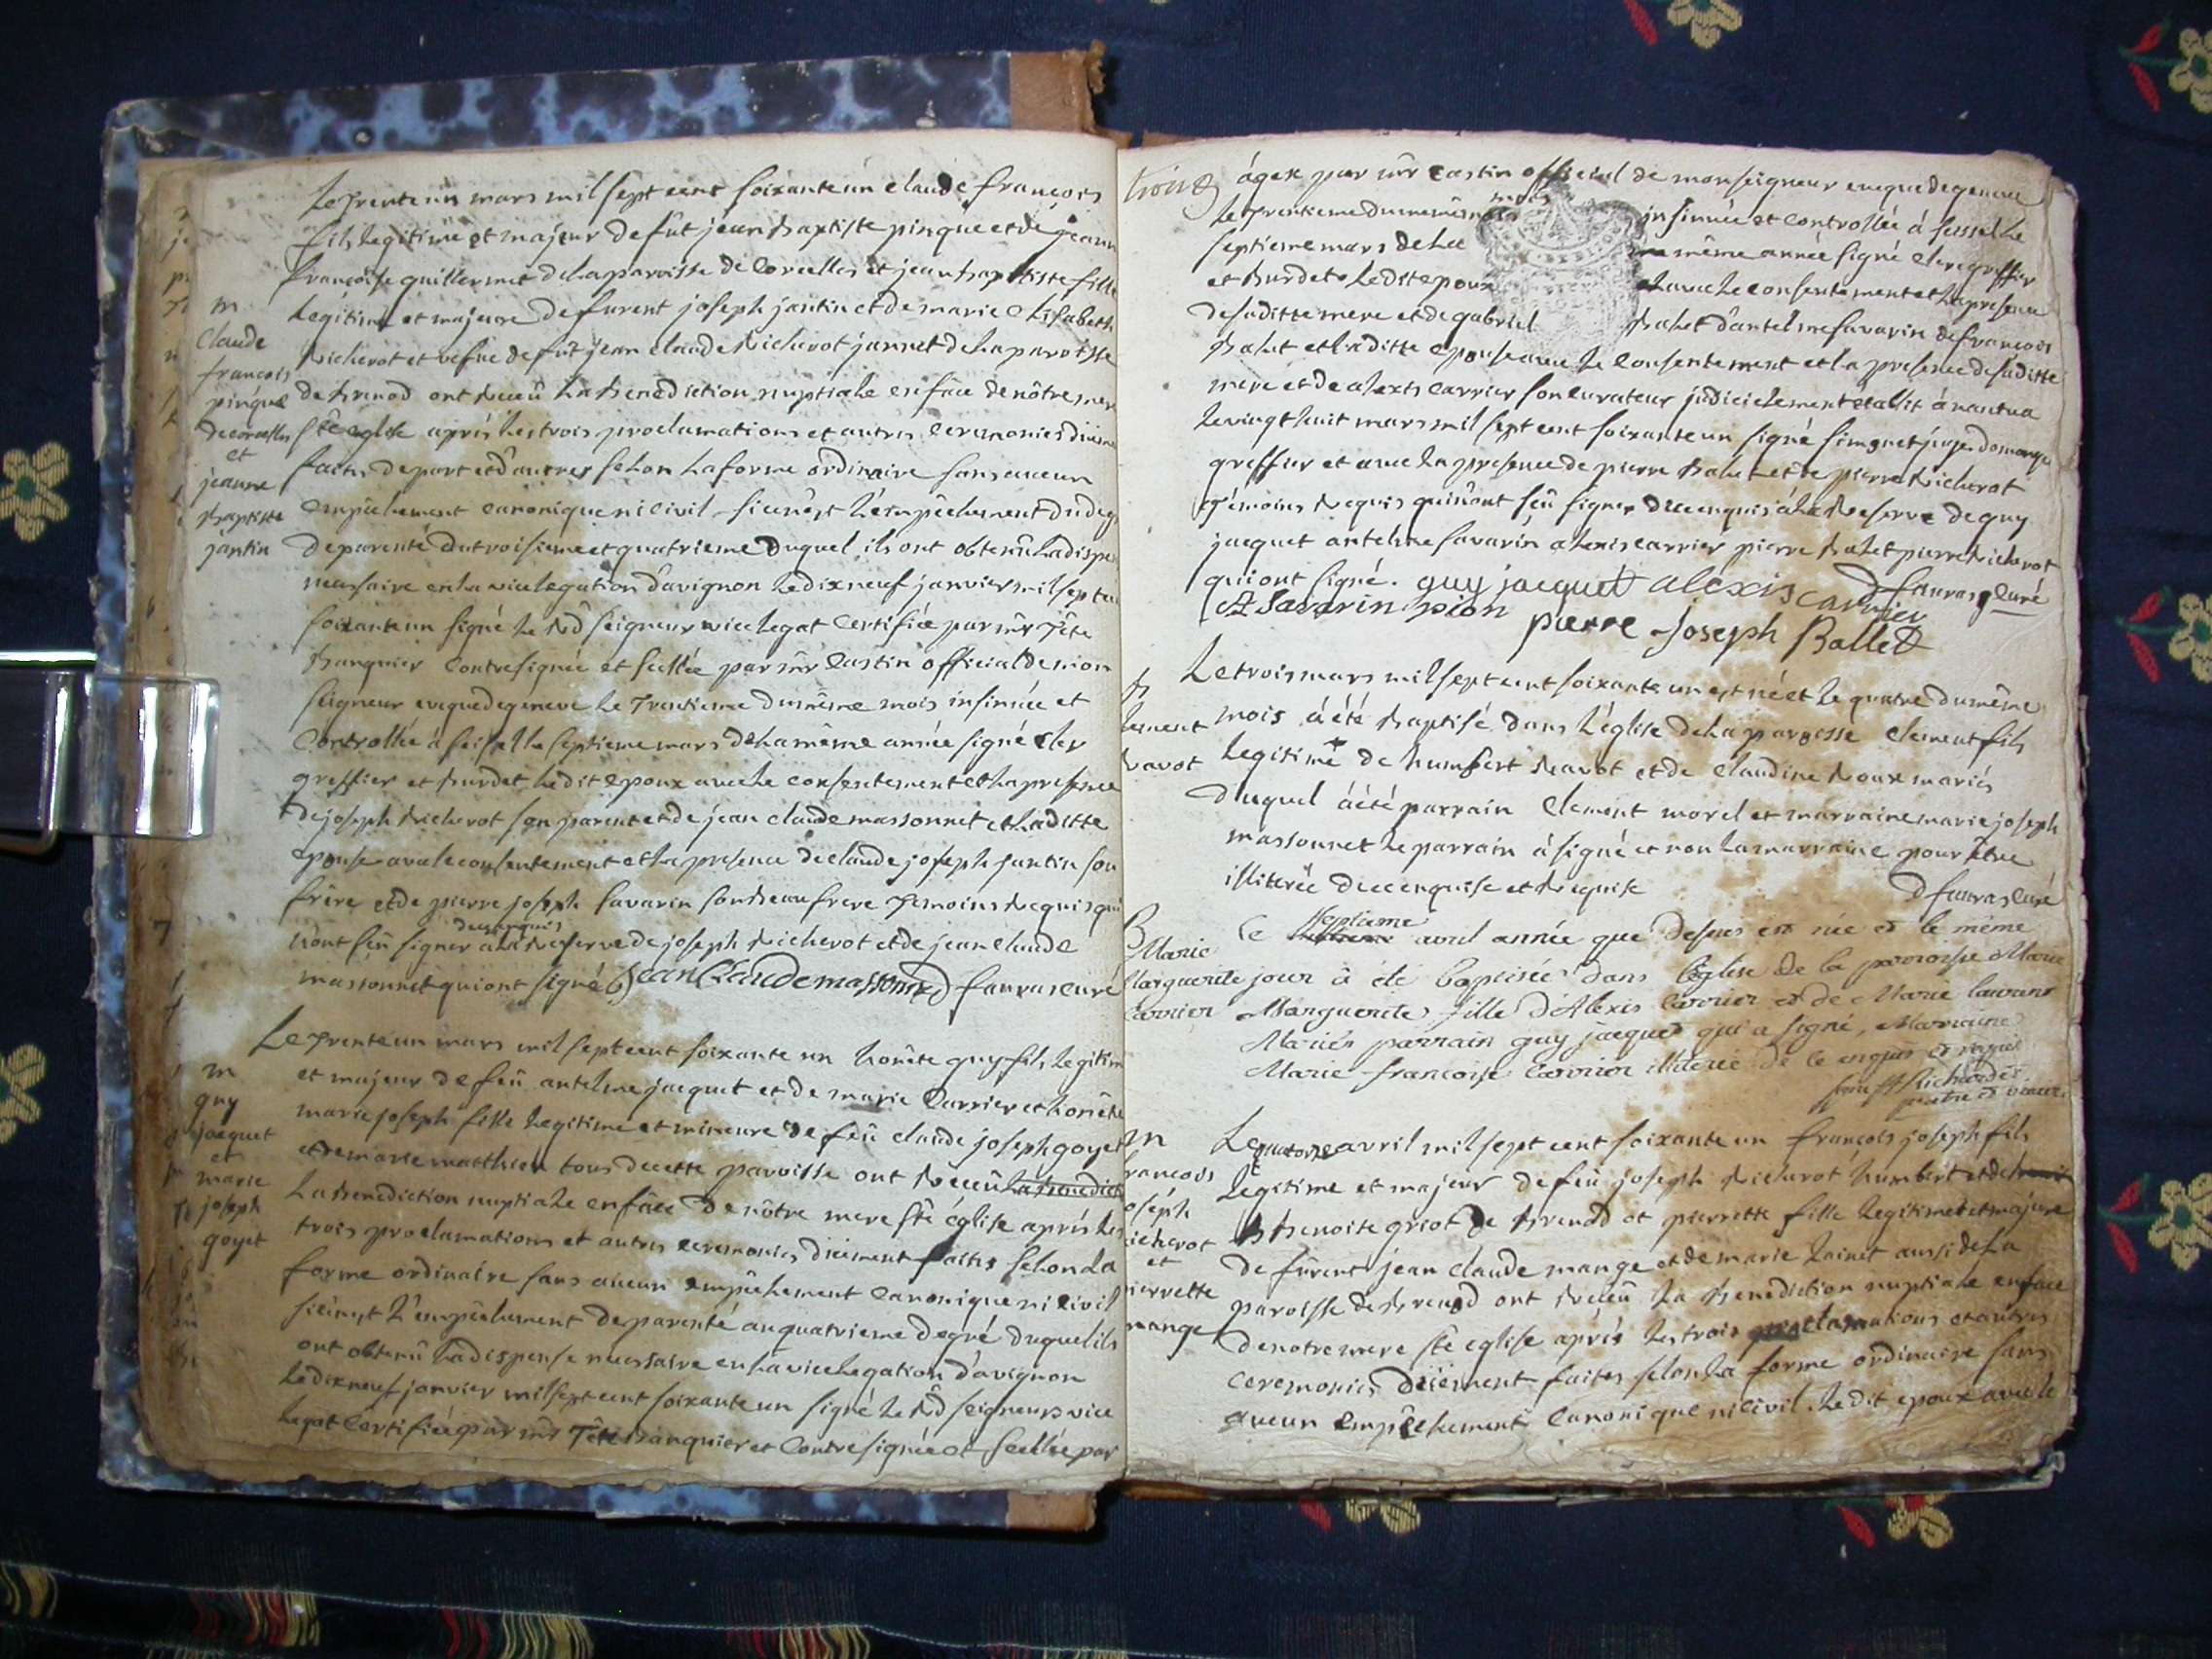 Le trente un mars mil sept cent soixante un claude françois
fils legitime et majeur de fût jean baptiste pinque et de jeann
françoise guillermet de la paroisse de Corcelles et jean baptiste fille
m
legitime et majeure de furent joseph jantin et de marie Elisabeth
Claude
Richerot et vefue de fût jean claude Richerot jannet de la paroisse
francois
de brenod ont Receû la Benediction nuptiale en face de nôtre mere
pinque
ste eglise aprés les trois proclamations et autres ceremonies düem
de corcelles
et
faites de part et d'autres selon la forme ordinaire sans aucun
jeanne
empêchement canonique ni civil si ce n'est l'empêchement du deg
baptiste
de parenté du troisieme et quatrieme duquel ils ont obtenû la dispe
jantin
necessaire en la vicelegation d'avignon le dixneuf janvier mil sept ce
soixante un signé le Rd seigneur vicelegat Certifiée par mr Tête
banquier Contresignée et scellée par mr Castin official de mon
seigneur eveque de geneve le Trentieme du même mois insinuée et
Controllée à seissel le septieme mars de la même année signé clerc
greffier et burdet ledit epoux avec le consentement et la presence
de joseph Richerot son parent et de jean claude massonnet et laditte
epouse avec le consentement et la presence de claude joseph jantin son
frère et de pierre joseph savarin son beau frere temoins Requis qui
de ce enquis
n'ont sçû signer a la Reserve de joseph Richerot et de jean claude
massonnet qui ont signé Jean Claude massonnet D fauras curé
Le trente un mars mil sept cent soixante un honête guy fils legitim
m
et majeur de feû antelme jacquet et de marie Carrier et honête
guy
marie joseph fille legitime et mineure de feû claude joseph goyet
jacquet
et de marie matthieu tous de cette paroisse ont Receû la benedict
et
marie
la benediction nuptiale en face de nôtre mere ste église aprés les
joseph
trois proclamations et autres ceremonies düement faites selon la
goyet
forme ordinaire sans aucun empêchement canonique ni civil
si ce n'est l'empêchement de parenté au quatrieme degré duquel ils
ont obtenû la dispense necessaire en la vicelegation d'avignon
le dixneuf janvier mil sept cent soixante un signé le Rd seigneur vice
legat Certifiée par mr Tête banquier et Contresignée et scellée par
trois
mr Castin official de monseigneur eveque de geneve
le trentieme du même mois insinuée et controllée à seissel le
septieme mars de la même année signé clerc greffier
et burdet ledit epoux avec le consentement et la presence
de saditte mere et de gabriel balet d'antelme savarin de françois
balet et laditte epouse avec le consentement et la presence de saditte
mere et de alexis carrier son curateur judicielement etablit á nantua
le vingt huit mars mil sept cent soixante un signé simonet juge domange
greffier et avec la presence de pierre balet et de pierre Richerot
témoins Requis qui n'ont sçû signer de ce enquis à la Reserve de guy
jacquet antelme savarin alexis carrier pierre balet pierre Richerot
qui ont signé. guy jacquet alexis carrier D fauras Curé
A Savarin pion pierre Joseph Ballet
Le trois mars mil sept cent soixante un est né et le quatre du même
b
lement
mois á été baptisé dans l'église de la paroisse clement fils
Ravot
legitime de humbert Ravot et de claudine Roux mariés
duquel á été parrain Clement morel et marraine marie joseph
massonnet le parrain á signé et non la marraine pour être
illiterée de ce enquise et Requise D fauras curé
B
Marie
Le septieme avril année que dessus est née et le même
Marguerite
jour à été baptisée dans l'église de la parroisse Marie
Carrier
Marguerite fille d'Alexis Carrier et de Marie laurent
Mariés parrain guy jacquet qui a signé, Marraine
Marie françoise Carrier illiterée de ce enquis et requis
Richerdet
pretre et vicaire
m
Le quatorze avril mil sept cent soixante un françois joseph fils
rancois
legitime et majeur de feû joseph Richerot humbert et de
oséph
Benoite griot de brenod et pierrette fille legitime et majeure
icherot
et
de furent jean claude mange et de marie lainet aussi de la
ierrette
paroisse de brenod ont Receû la benediction nuptiale en face
mange
de notre mere ste eglise aprés les trois proclamations et autres
ceremonies düement faites selon la forme ordinaire sans
aucun empêchement Canonique ni civil. ledit epoux avec le